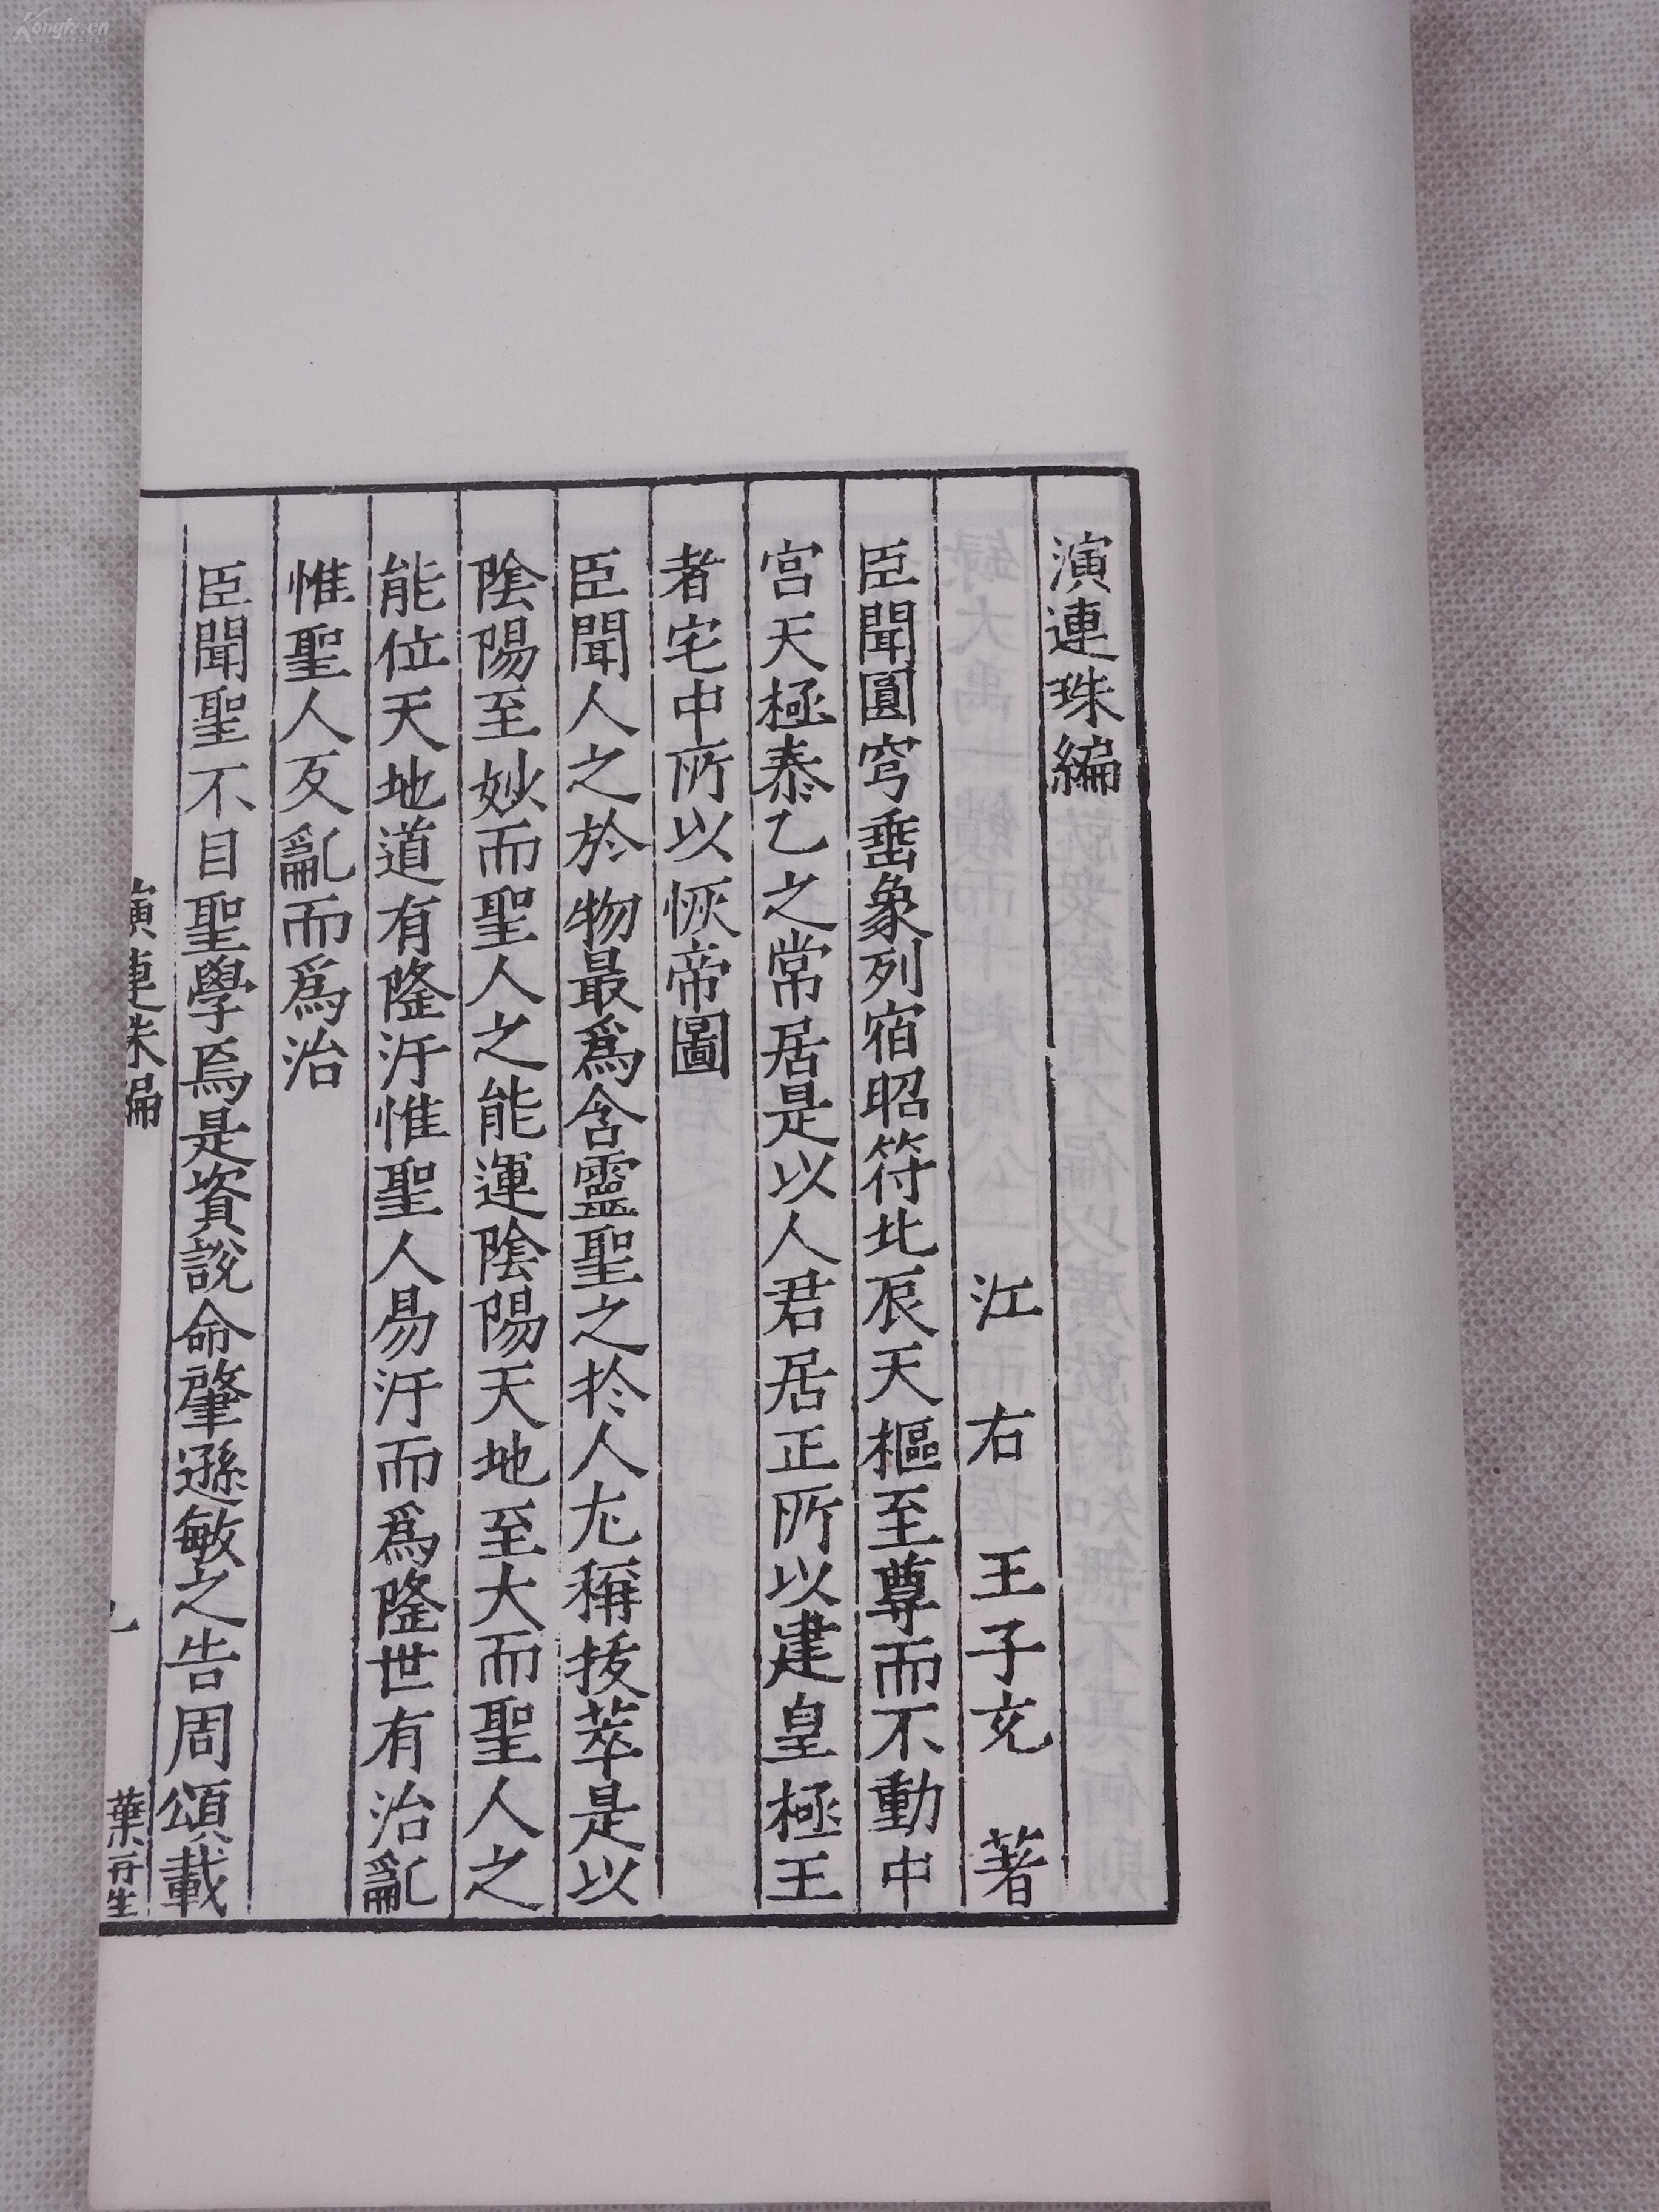 演連珠編
江右王子充著
臣聞圓穹垂象列宿昭符北辰天樞至尊而不動中
宮天極泰乙之常居是以人君居正所以建皇極王
者宅中所以恢帝圖
臣聞人之於物最爲含靈聖之於人尤稱拔萃是以
陰陽至妙而聖人之能運陰陽天地至大而聖人之
能位天地道有隆汙惟聖人易汙而爲隆世有治亂
惟聖人反亂而爲治
臣聞聖不自聖學焉是資說命肇遜敏之告周頌載
演連珠編
葉再生
Kongfz.cn